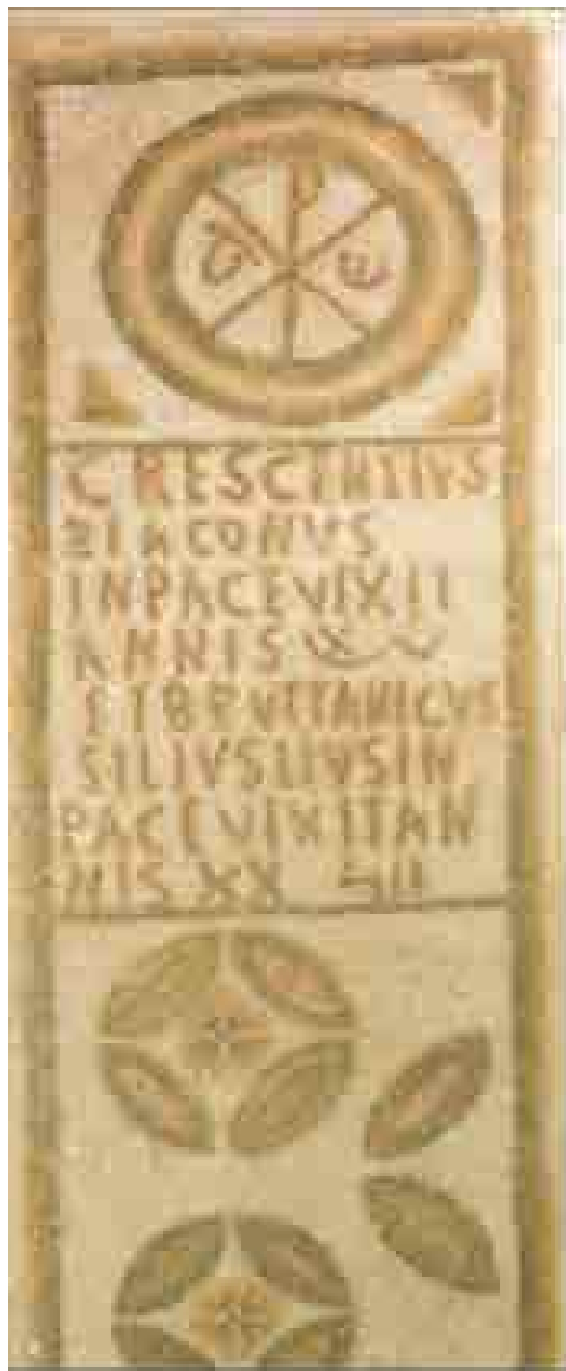 CRESCENTINVS
DIACONVS
INPACEVIXIT
ANNIS
SILIVSEIVSIN
PACEVIXITAN
NIS XX